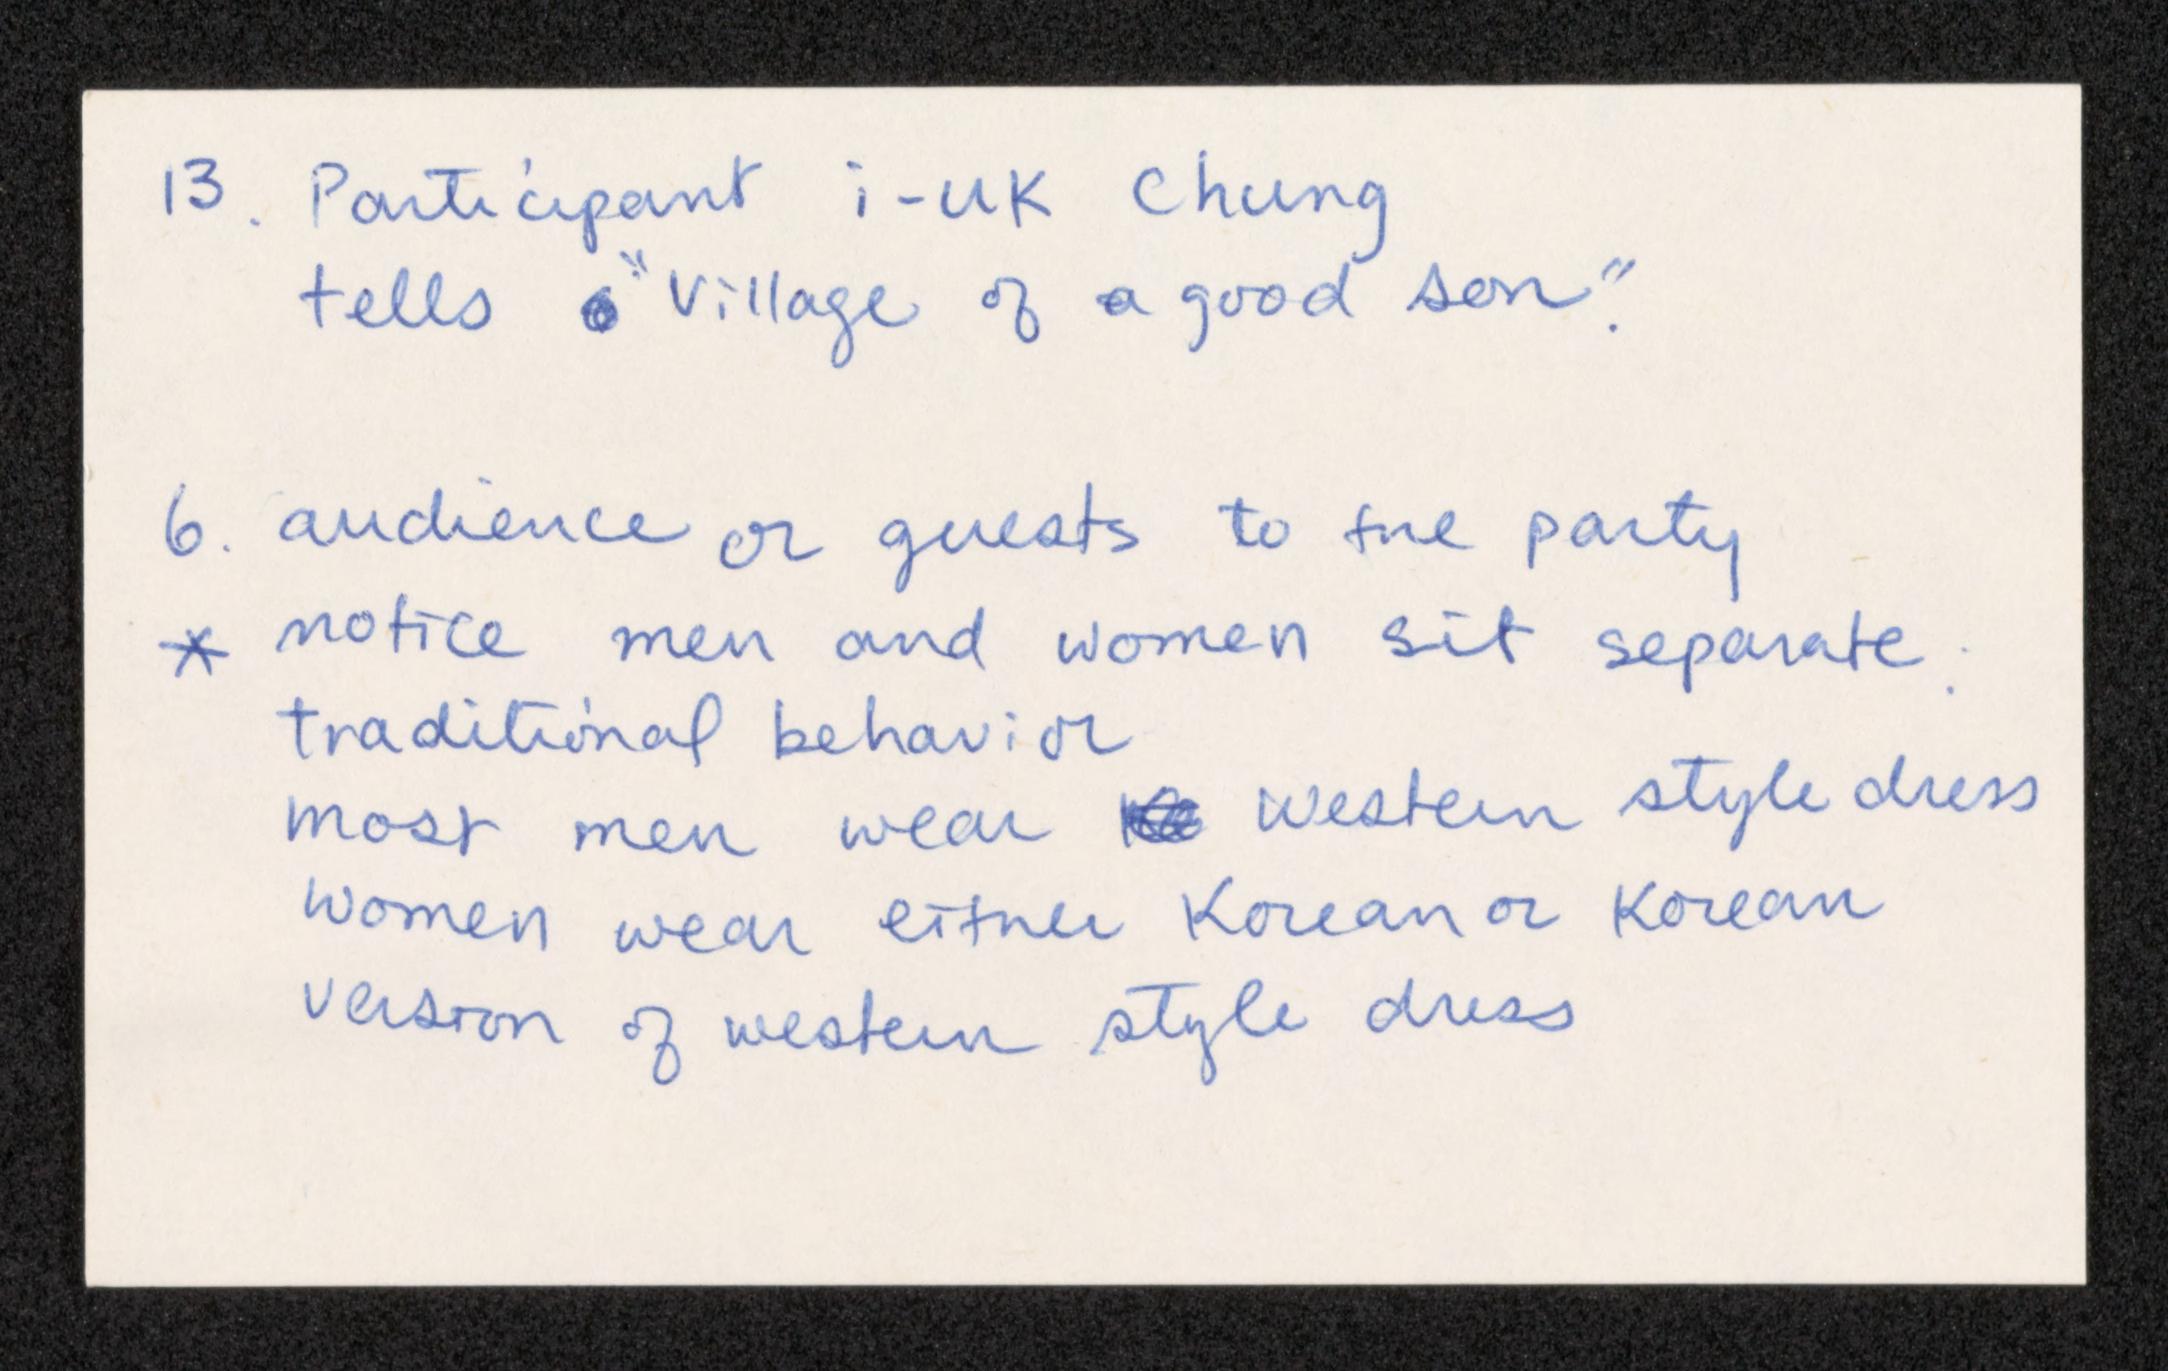 13. Participant i-uk Chung
tells "Village of a good son".
6. audience or guests to the party
* notice men and women sit separate.
traditional behavior
most men wear western style dress
women wear either Korean or Korean
version of western style dress